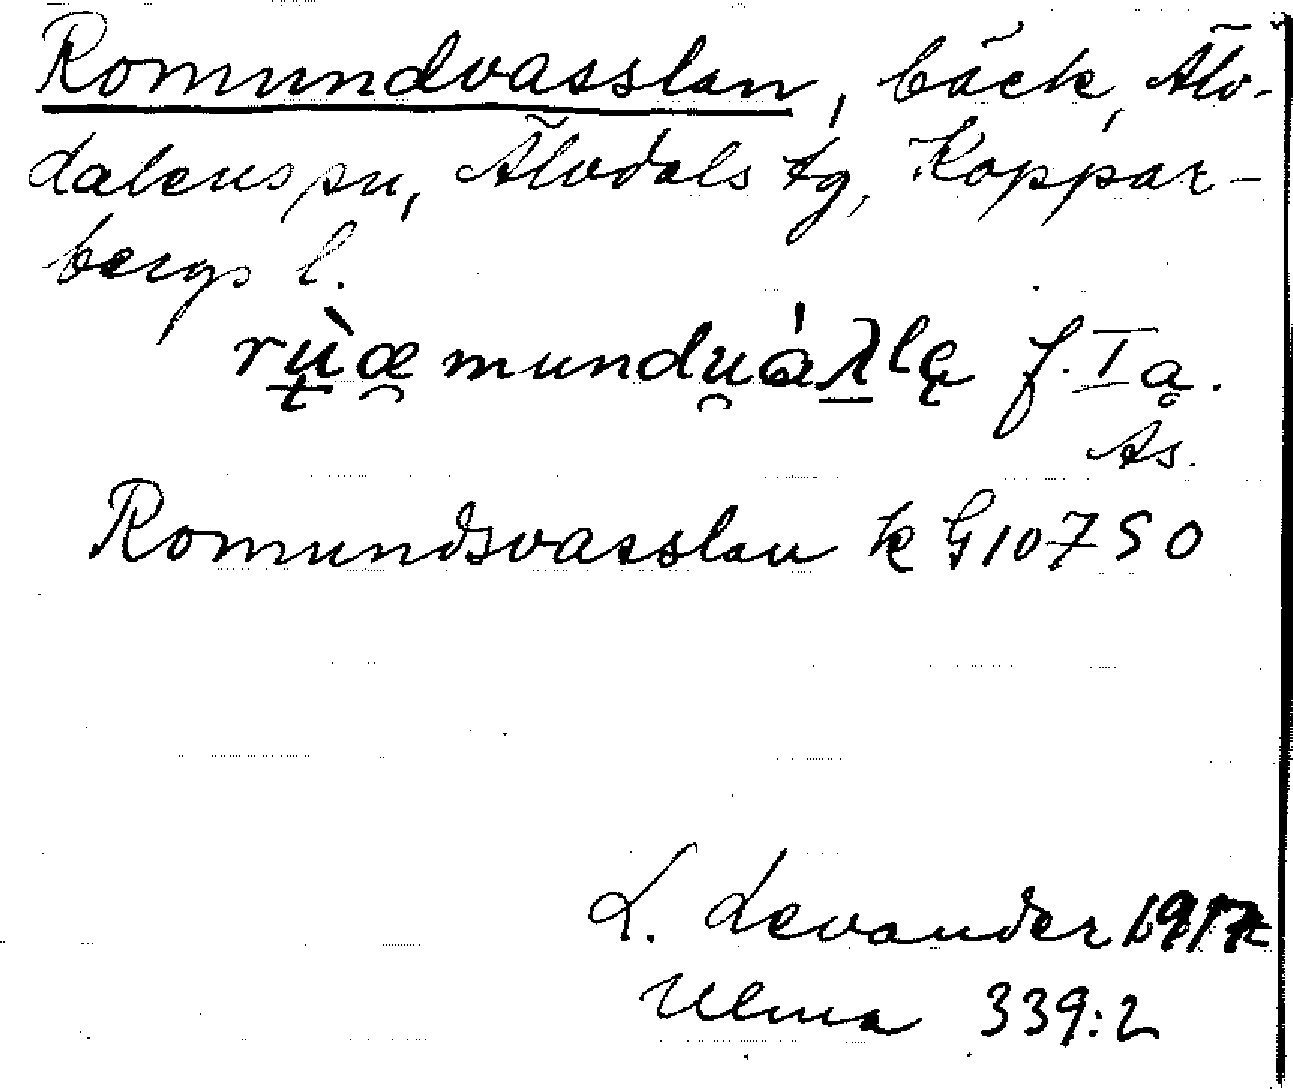 Romundvasslan, bäck, Älv-
dalens sn, Älvdals tg, Koppar-
bergs l.
rṳ̀œ̯mundu̯áλ̲lę f. I ą.
Ås.
Romundsvasslan k G 10750
L. Levander
Ulma 339:2